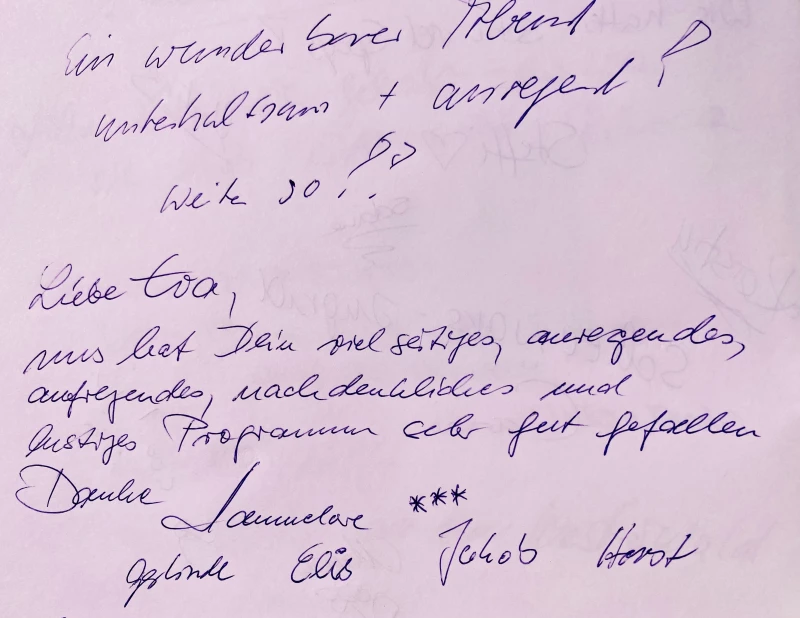 Ein wunderbarer Abend
unterhaltsam + anregend!
Weiter so!!
Liebe Eva,
uns hat Dein vielseitiges, anregendes,
aufregendes, nachdenkliches und
lustiges Programm sehr gut gefallen
Danke Hannelore ***
Elis Jakob Horst